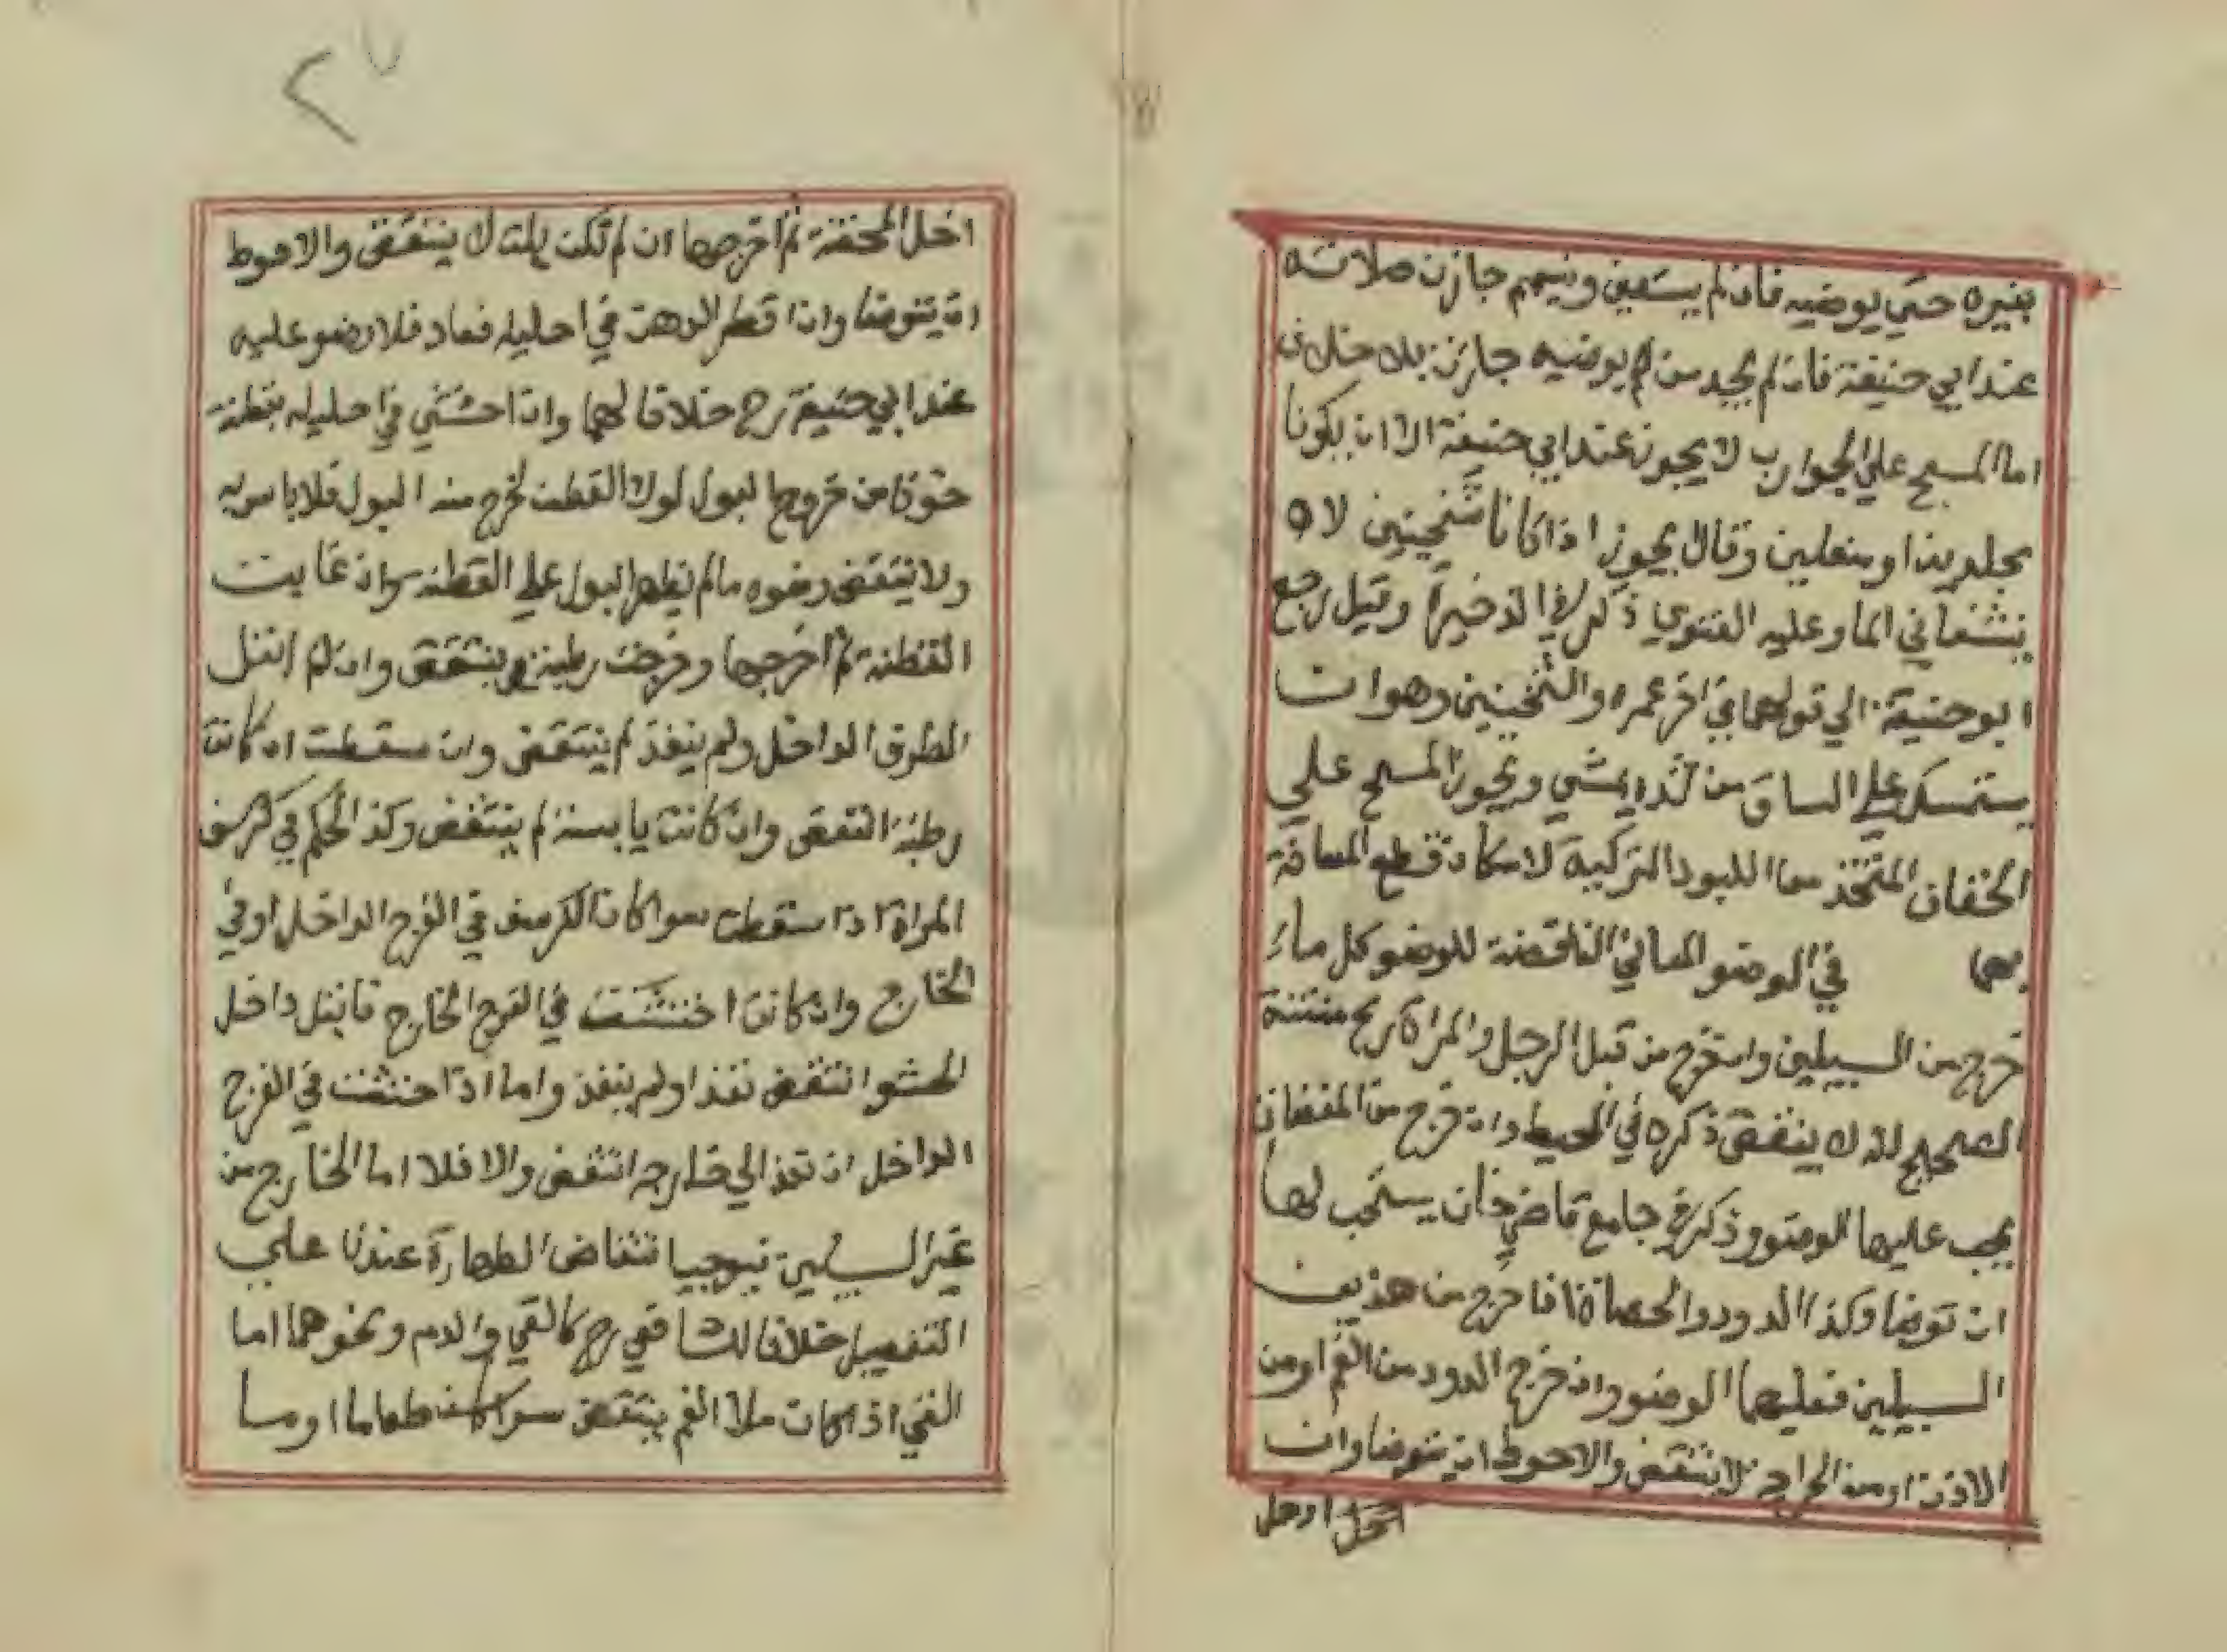 بغيره حتي يوضيه فان لم يستعين وتيمم جازت صلاته
عند ابي حنيفة فان لم يجد من لم يوضيه جازت بلا خلاف
اما المسح علي الجوارب لا يجوز عند ابي حنيفة الا ان يكونا
مجلدين او منعلين وقال يجوز اذا كانا ثخينين لا ه
ينشفاني الما وعليه الفتوي ذكر في الذخيرة وقيل رجع
ابو حنيفة الي قولهما في اخر عمره والثخينين وهو ان
يستمسك علي الساق من يمشي ويجوز المسح علي
الخفان المتخذ من اللبود التركية لامكان قطع المسافة
بهما في الوضو المعاني الناقضة للوضو كل ما
خرج من السبيلين وان خرج من قبل الرجل والمراة ريح منتنة
الصحيح لا ينقض ذكره في المحيط وان خرج من المفضات
يجب عليها الوضو وذكر في جامع قاضي خان يستحب لها
ان توضا وكذا الدود والحصاة اذا خرج من هذين
السبيلين فعليهما الوضو وان خرج الدود من الفم او من
الاذن او من الجراحة لا ينتقض والاحوط ان يتوضا وان
ادخل
٢٧
ادخل المحقنة ثم اخرجها ان لم تكن بلت لا ينتقض والاحوط
ان يتوضا وان قطر الدهن في احليله فعاد فلا وضو عليه
عند ابي حنيفة رح خلافا لهما وان احتشي في احليله بقطنة
خوفا من خروج البول لولا القطن لخرج منه البول فلا باس به
ولا ينتقض وضوه ما لم يظهر البول علي القطنة وان غابت
القطنة ثم اخرجها وخرجت رطبة ينتقض وان لم ابتل
الطرف الداخل ولم ينفذ لم ينتقض وان سقطت ان كانت
رطبة انتقض وان كانت يابسة لم ينتقض وكذ الحكم في كرسف
المراة اذا سقطت سوا كان الكرسف في الفرج الداخل او في
الخارج وان كانت احتشت في الفرج الخارج فابتل داخل
الحشو انتقض نفذ او لم ينفذ واما اذا احتشت في الفرج
الداخل ان نفذ الي خارجه انتقض والا فلا اما الخارج من
غير السبيلين فيوجب انتقاض الطهارة عندنا علي
التفصيل خلافا للشافعي رح كالقي والدم ونحوهما اما
القي اذا كان ملا الفم ينتقض سوا كان طعاما او ما